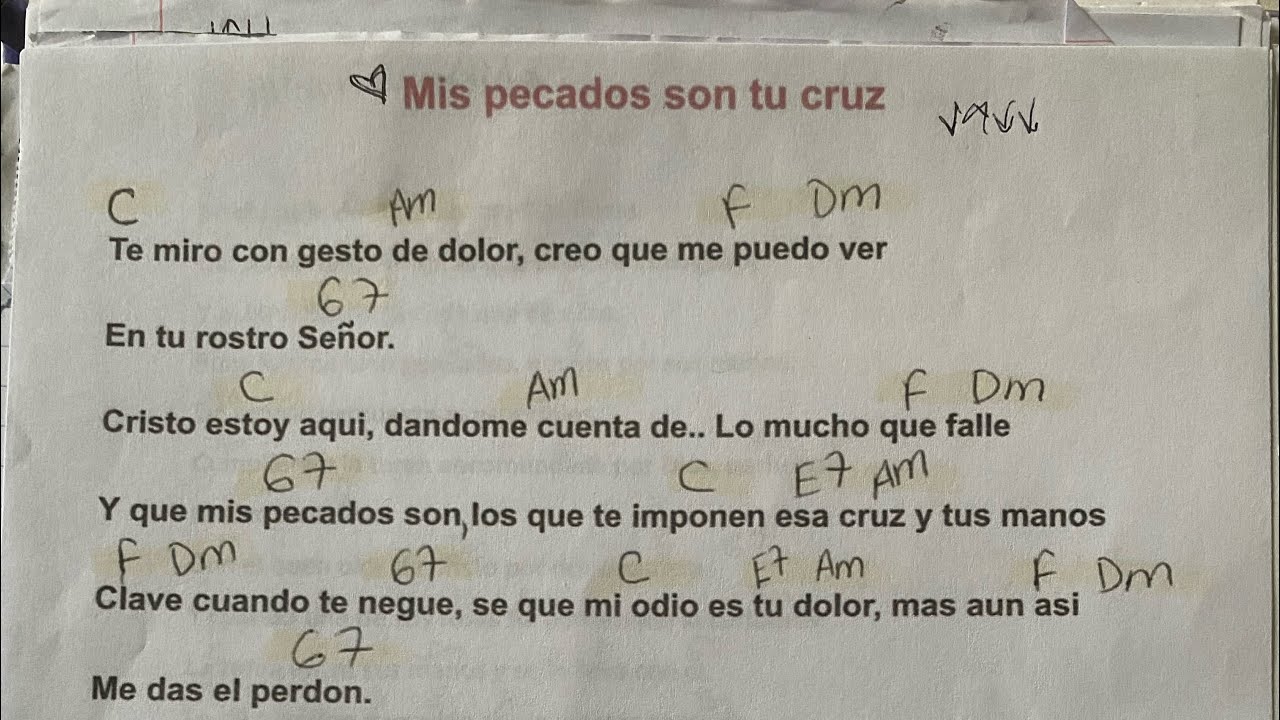 Mis pecados son tu cruz
C Am F Dm
Te miro con gesto de dolor, creo que me puedo ver
G7
En tu rostro Señor.
C Am F Dm
Cristo estoy aqui, dandome cuenta de.. Lo mucho que falle
G7 C E7 Am
Y que mis pecados son, los que te imponen esa cruz y tus manos
F Dm G7 C E7 Am F Dm
Clave cuando te negue, se que mi odio es tu dolor, mas aun asi
G7
Me das el perdon.